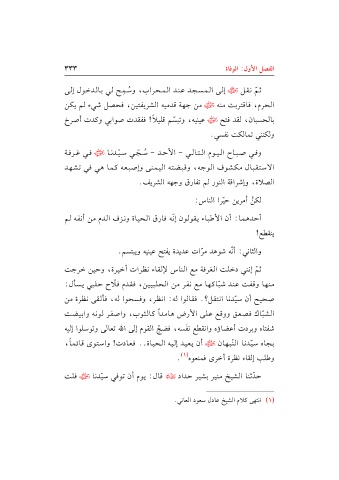 الفصل الأول: الوفاة ٣٣٣
ثمّ نقل ﷺ إلى المسجد عند المحراب، وسُمِح لي بالدخول إلى
الحرم، فاقتربت منه ﷺ من جهة قدميه الشريفتين، فحصل شيء لم يكن
بالحسبان، لقد فتح ﷺ عينيه، وتبسّم قليلاً! ففقدت صوابي وكدت أصرخ
ولكنني تمالكت نفسي.
وفي صباح اليوم التالي - الأحد - سُجّي سيّدنا ﷺ في غرفة
الاستقبال مكشوف الوجه، وقبضته اليمنى وإصبعه كما هي في تشهد
الصلاة، وإشراقة النور لم تفارق وجهه الشريف.
لكنّ أمرين حيّرا الناس:
أحدهما: أن الأطباء يقولون إنّه فارق الحياة ونزف الدم من أنفه لم
ينقطع!
والثاني: أنّه شوهد مرّات عديدة يفتح عينيه ويبتسم.
ثمّ إنني دخلت الغرفة مع الناس لإلقاء نظرات أخيرة، وحين خرجت
منها وقفت عند شبّاكها مع نفر من الحلبيين، فقدم فلّاح حلبي يسأل:
صحيح أن سيّدنا انتقل؟. فقالوا له: انظر، وفسحوا له، فألقى نظرة من
الشبّاك فصعق ووقع على الأرض هامداً كالثوب، واصفر لونه وابيضت
شفتاه وبردت أعضاؤه وانقطع نفَسه، فضجّ القوم إلى الله تعالى وتوسلوا إليه
بجاه سيّدنا النّبهان ﷺ أن يعيد إليه الحياة.. فعادت! واستوى قائماً،
وطلب إلقاء نظرة أخرى فمنعوه(١).
حدّثنا الشيخ منير بشير حداد قال: يوم أن توفي سيّدنا ﷺ قلت
(١) انتهى كلام الشيخ عادل سعود العاني.